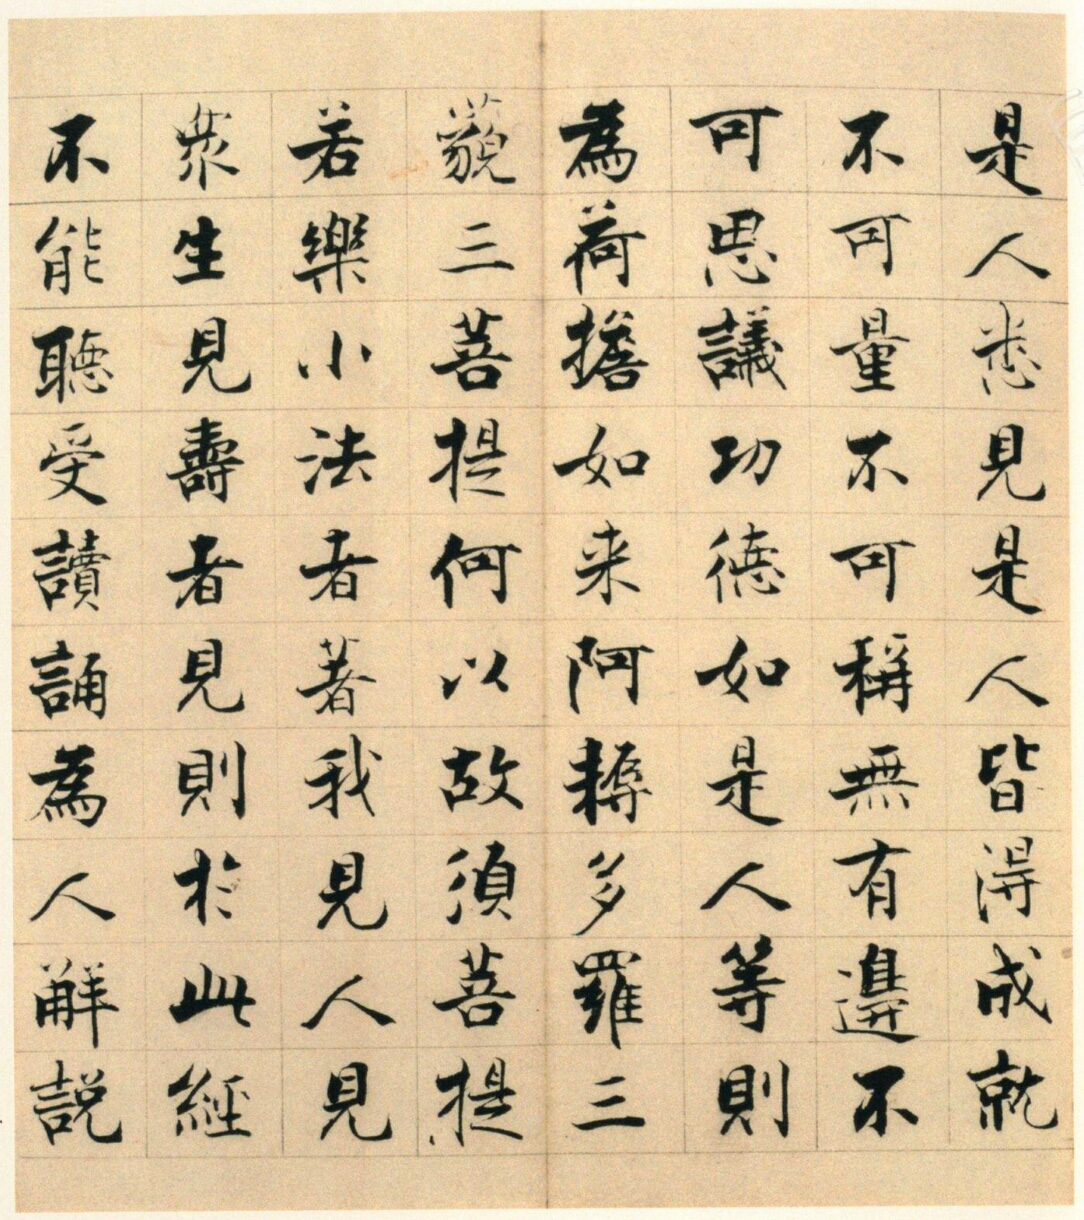 是人悉見是人皆得成就
不可量不可稱無有邊不
可思議功德如是人等則
為荷擔如来阿耨多羅三
藐三菩提何以故須菩提
若樂小法者著我見人見
衆生見壽者見則於此經
不能聽受讀誦為人解説